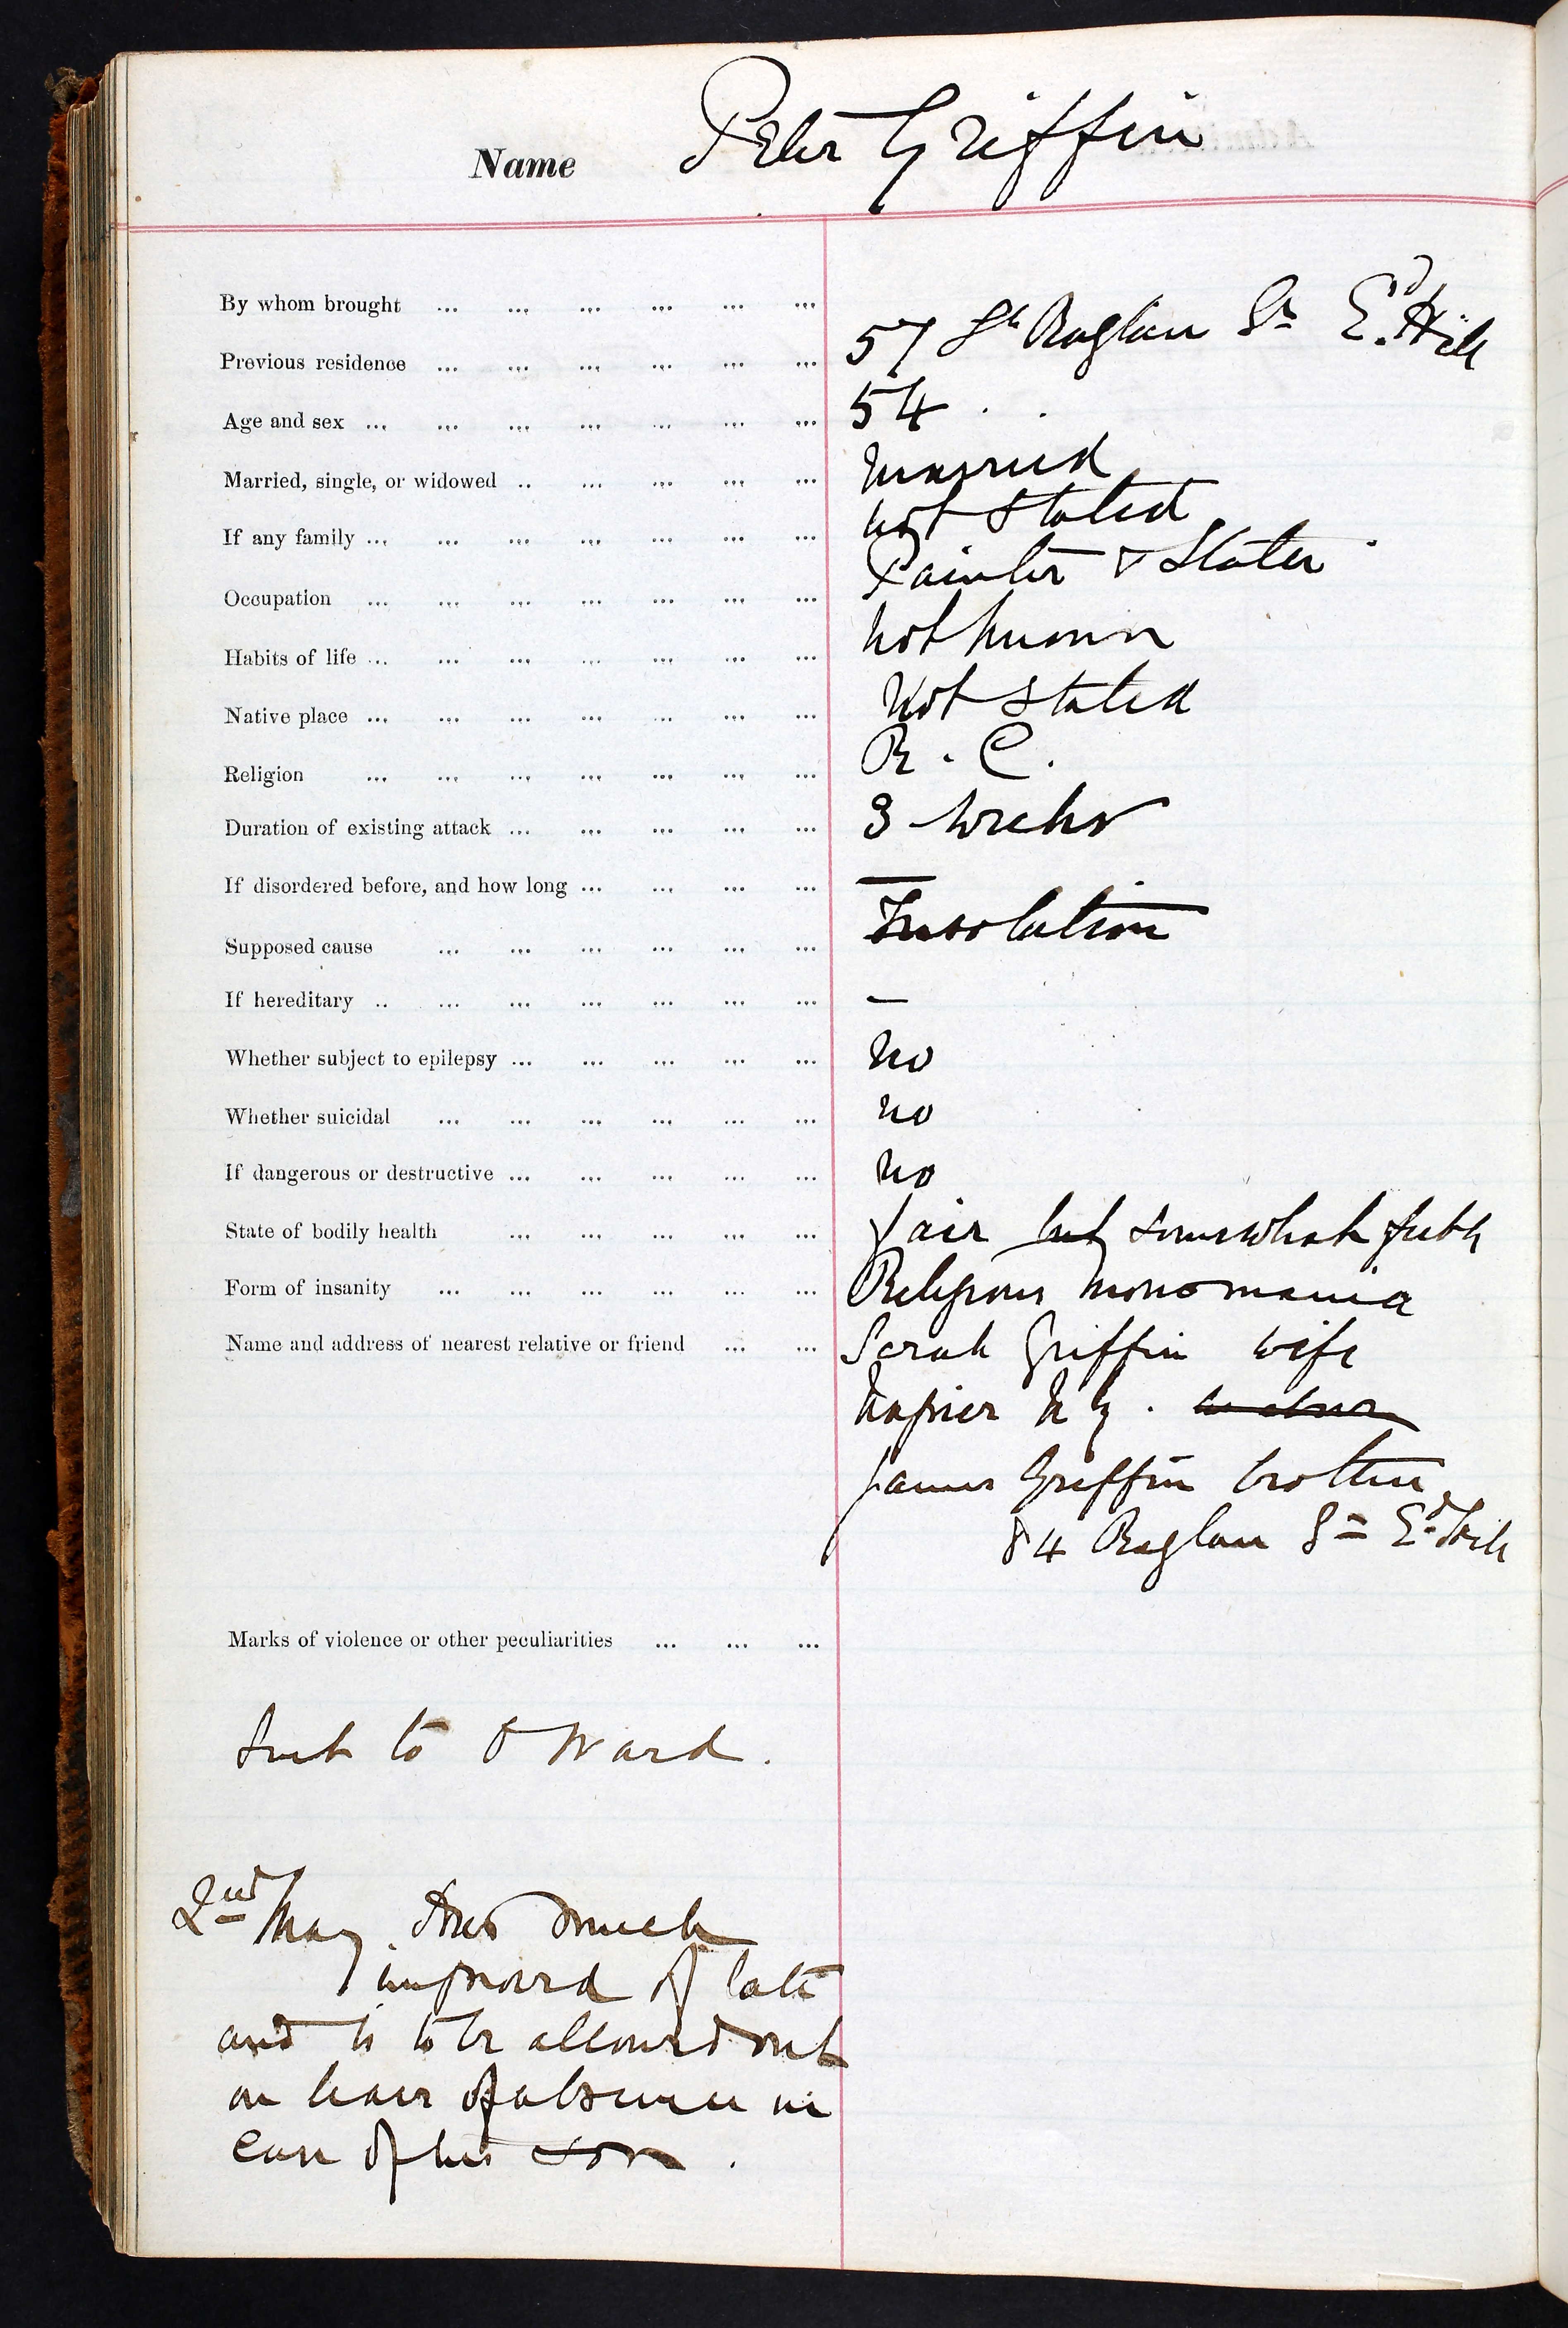 Name Peter Griffin
By whom brought ... ... ... ... ... ...
Previous residence ... ... ... ... ... ... 57 Raglan St Ed Hill
Age and sex ... ... ... ... ... ... ... 54 . .
Married, single, or widowed .. ... ... ... ... married
If any family ... ... ... ... ... ... ... not stated
Occupation ... ... ... ... ... ... ... Painter & Slater
Habits of life ... ... ... ... ... ... ... not known
Native place ... ... ... ... ... ... ... Not stated
Religion ... ... ... ... ... ... ... R. C.
Duration of existing attack ... ... ... ... ... 3 weeks
If disordered before, and how long ... ... ... ... —
Supposed cause ... ... ... ... ... ... Insolation
If hereditary .. ... ... ... ... ... ... —
Whether subject to epilepsy ... ... ... ... ... no
Whether suicidal ... ... ... ... ... ... no
If dangerous or destructive ... ... ... ... ... no
State of bodily health ... ... ... ... ... fair but somewhat feeble
Form of insanity ... ... ... ... ... ... Religious monomania
Name and address of nearest relative or friend ... ... Sarah Griffin wife
Napier N Z.
James Griffin brother
84 Raglan St Ed Hill
Marks of violence or other peculiarities ... ... ...
Sent to Ward.
2nd May. Has much
improved of late
and is to be allowed out
on leave of absence in
care of his son.